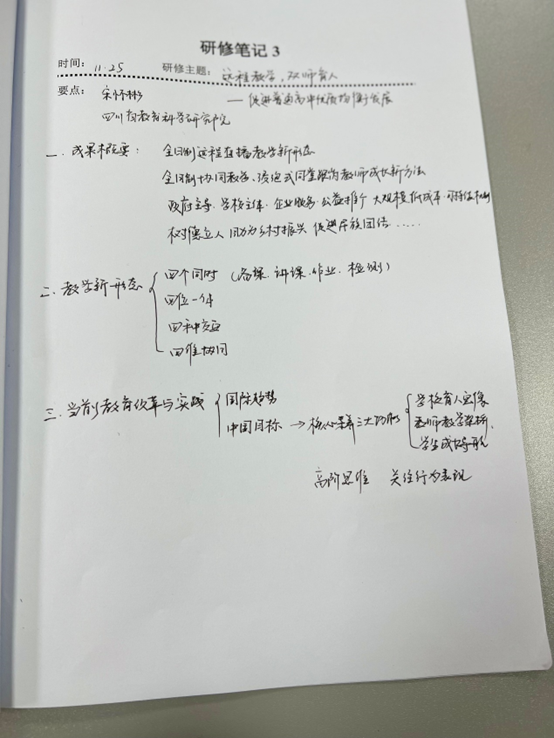 研修笔记 3
时间: 11.25 研修主题: 远程教学,双师育人
要点: 宋怀彬 ——促进普通高中优质均衡发展
四川省教育科学研究院
一、成果概要: 全日制远程直播教学新形态
全日制协同教学、浸泡式同堂跟岗教师成长新方法
政府主导·学校主体·企业服务·公益推行 大规模·低成本·可持续机制
树德立人 助力乡村振兴 促进民族团结……
二、教学新形态 四个同时 (备课、讲课、作业、检测)
四位一体
四种交互
四维协同
三、当前教育改革与实践 国际趋势
中国目标 → 核心素养三大功能 学校育人画像
教师教学架桥、
学生成长导航
高阶思维 关注行为表现